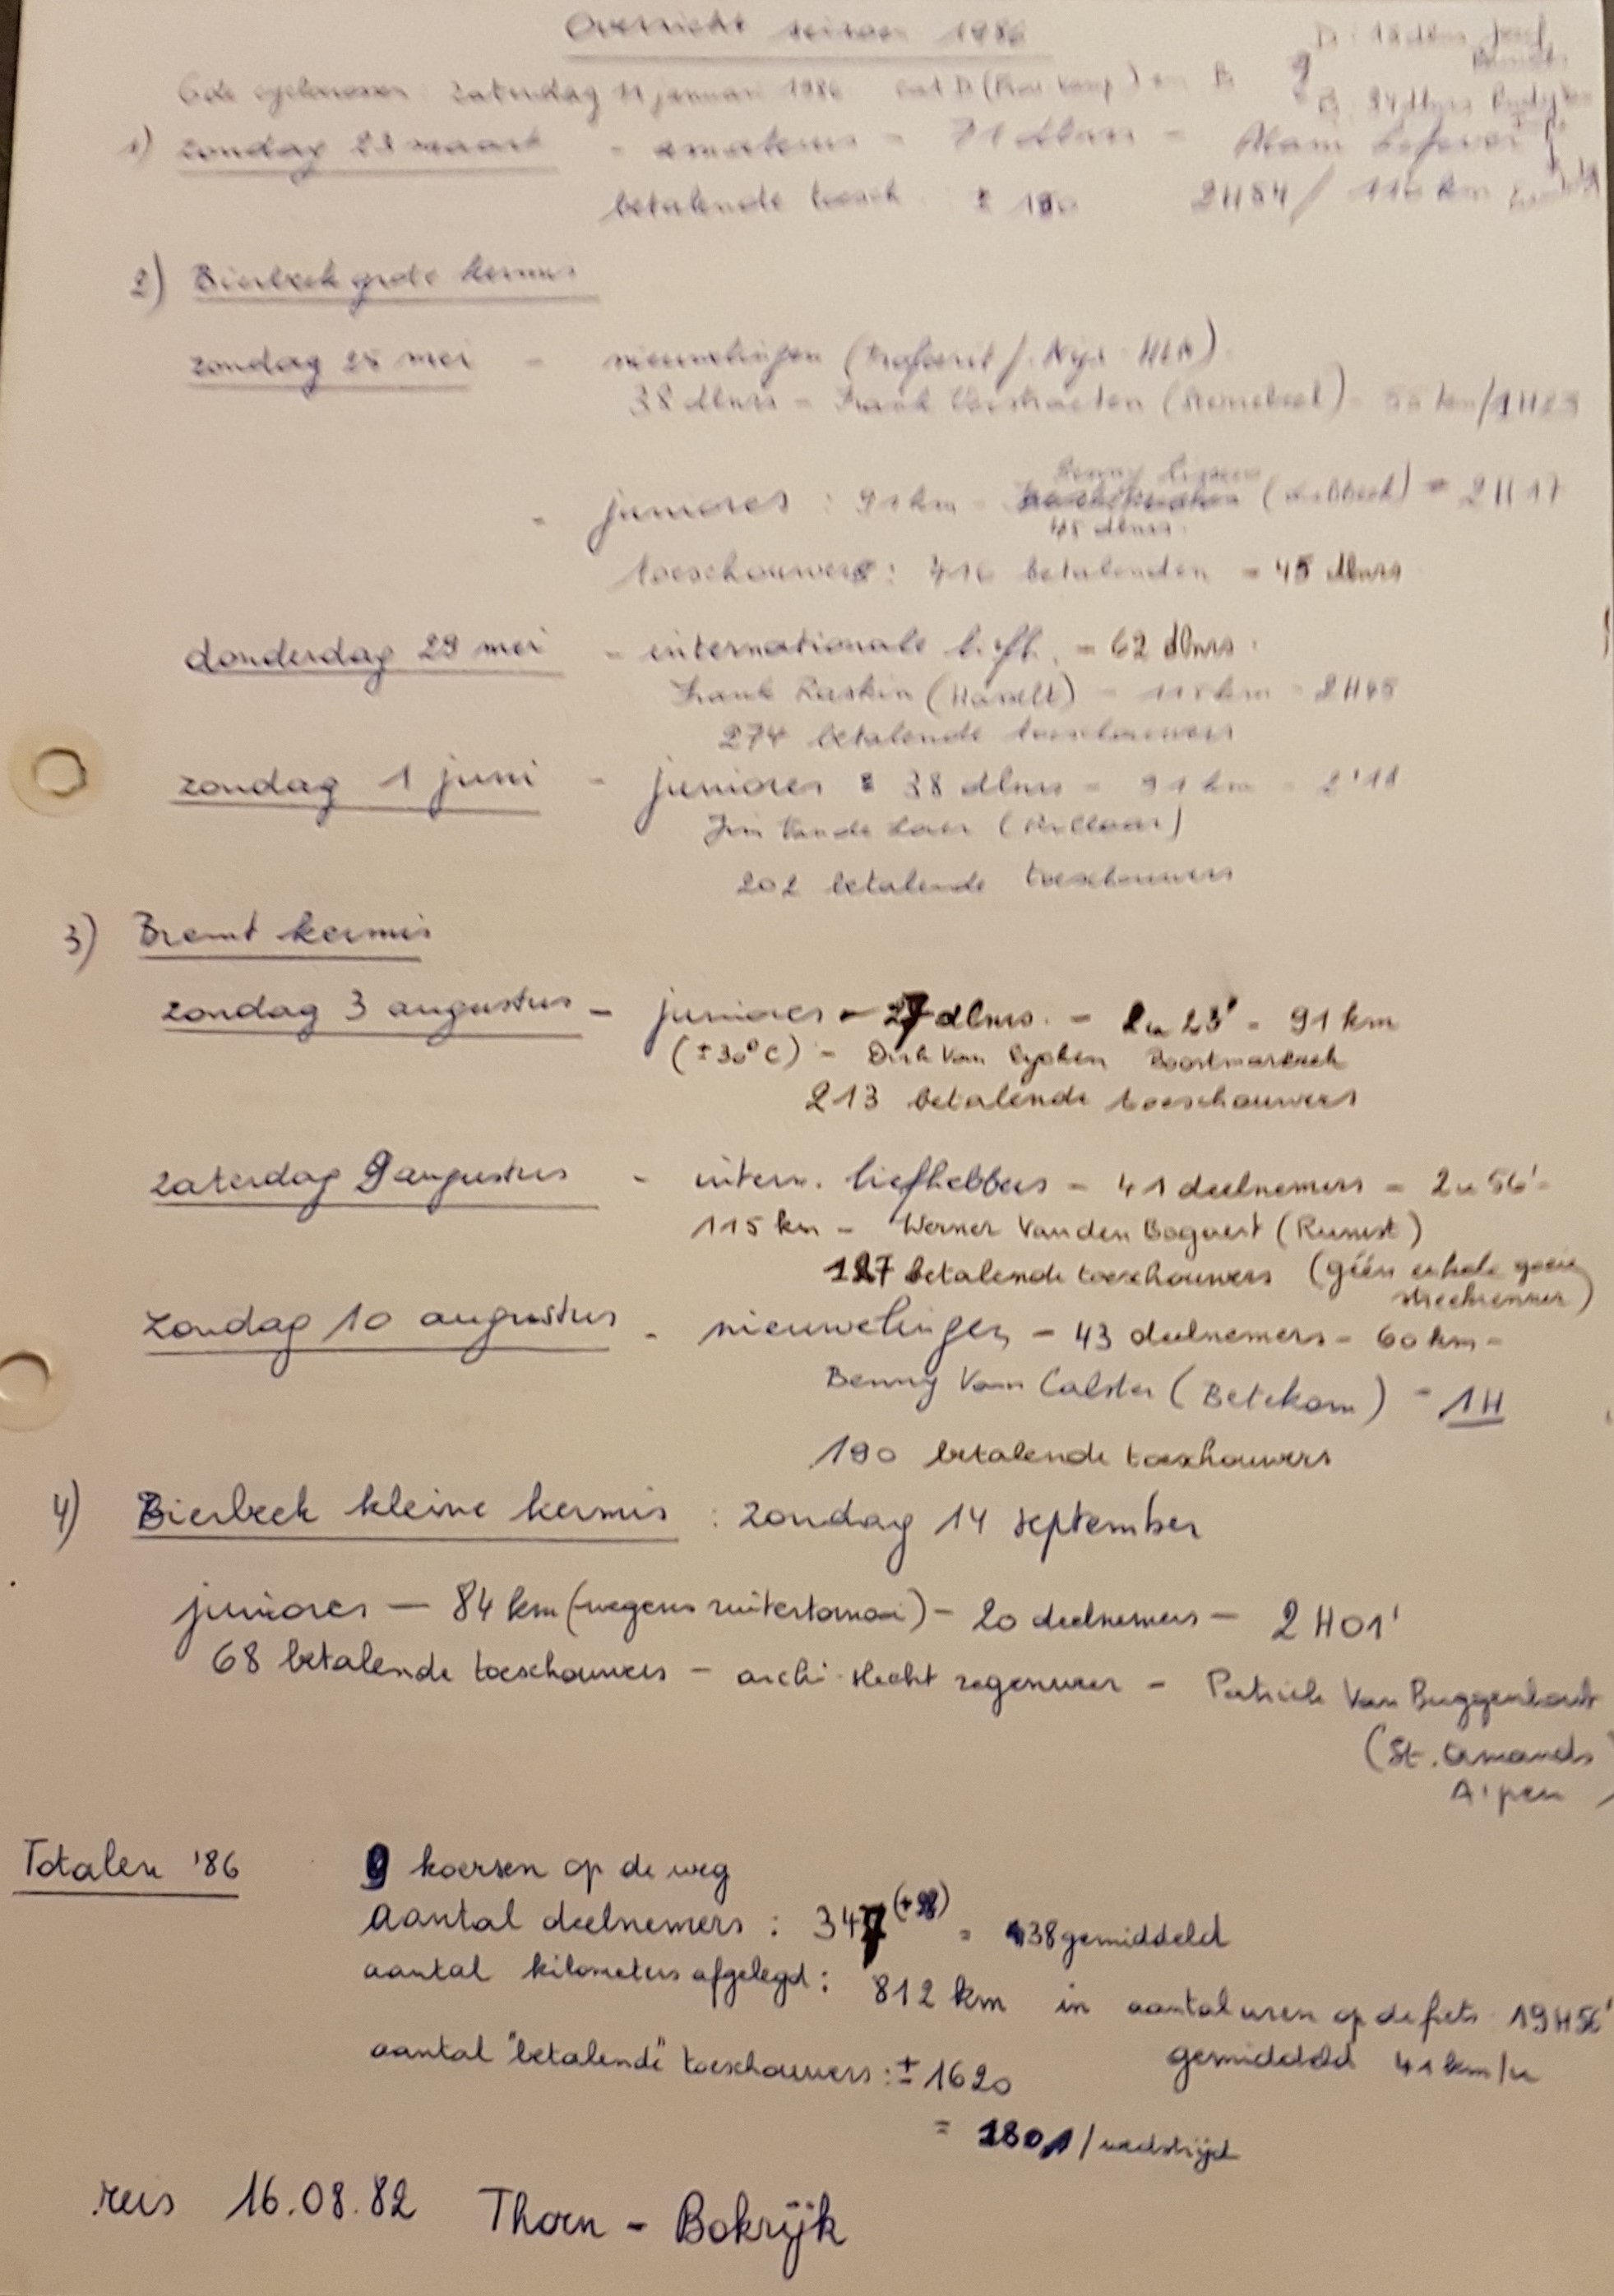 Overzicht seizoen 1986
zaterdag 11 januari 1986
1) zondag 23 maart - amateurs - 71 dlnrs - Alain
betalende toesch. 2H54 / 116 km
2) Bierbeek grote kermis
zondag 25 mei - nieuwelingen
38 dlnrs - Frank Verstraeten km/1H23
- juniores : 91 km - Benny = 2H17
45 dlnrs.
toeschouwers : 416 betalenden = 45 dlnrs
donderdag 29 mei - internationale liefh. = 62 dlnrs.
Frank Raskin (Hasselt) - 115 km -
274 betalende toeschouwers
zondag 1 juni - juniores : 38 dlnrs - 91 km - 2'18
202 betalende toeschouwers
3) Bremt kermis
zondag 3 augustus - juniores - 27 dlnrs. - 2u 23' - 91 km
(±30°C) - Dirk Van Boortmeerbeek
213 betalende toeschouwers
zaterdag 9 augustus - intern. liefhebbers - 41 deelnemers - 2u 56' -
115 km - Werner Vanden Bogaert (Rumst)
127 betalende toeschouwers (géén enkele goeie
streekrenner)
zondag 10 augustus - nieuwelingen - 43 deelnemers - 60 km -
Benny Van Calster (Betekom) - 1H
190 betalende toeschouwers
4) Bierbeek kleine kermis : zondag 14 september
juniores - 84 km (wegens ruitertornooi) - 20 deelnemers - 2H01'
68 betalende toeschouwers - archi-slecht regenweer - Patrick Van Buggenhout
(St. Amands
Totalen '86 9 koersen op de weg
aantal deelnemers : 347 = 38 gemiddeld
aantal kilometers afgelegd : 812 km in aantal uren op de fiets 19H56'
gemiddeld 41 km/u
aantal "betalende" toeschouwers : ± 1620
= 180 / wedstrijd
reis 16.08.82 Thorn - Bokrijk